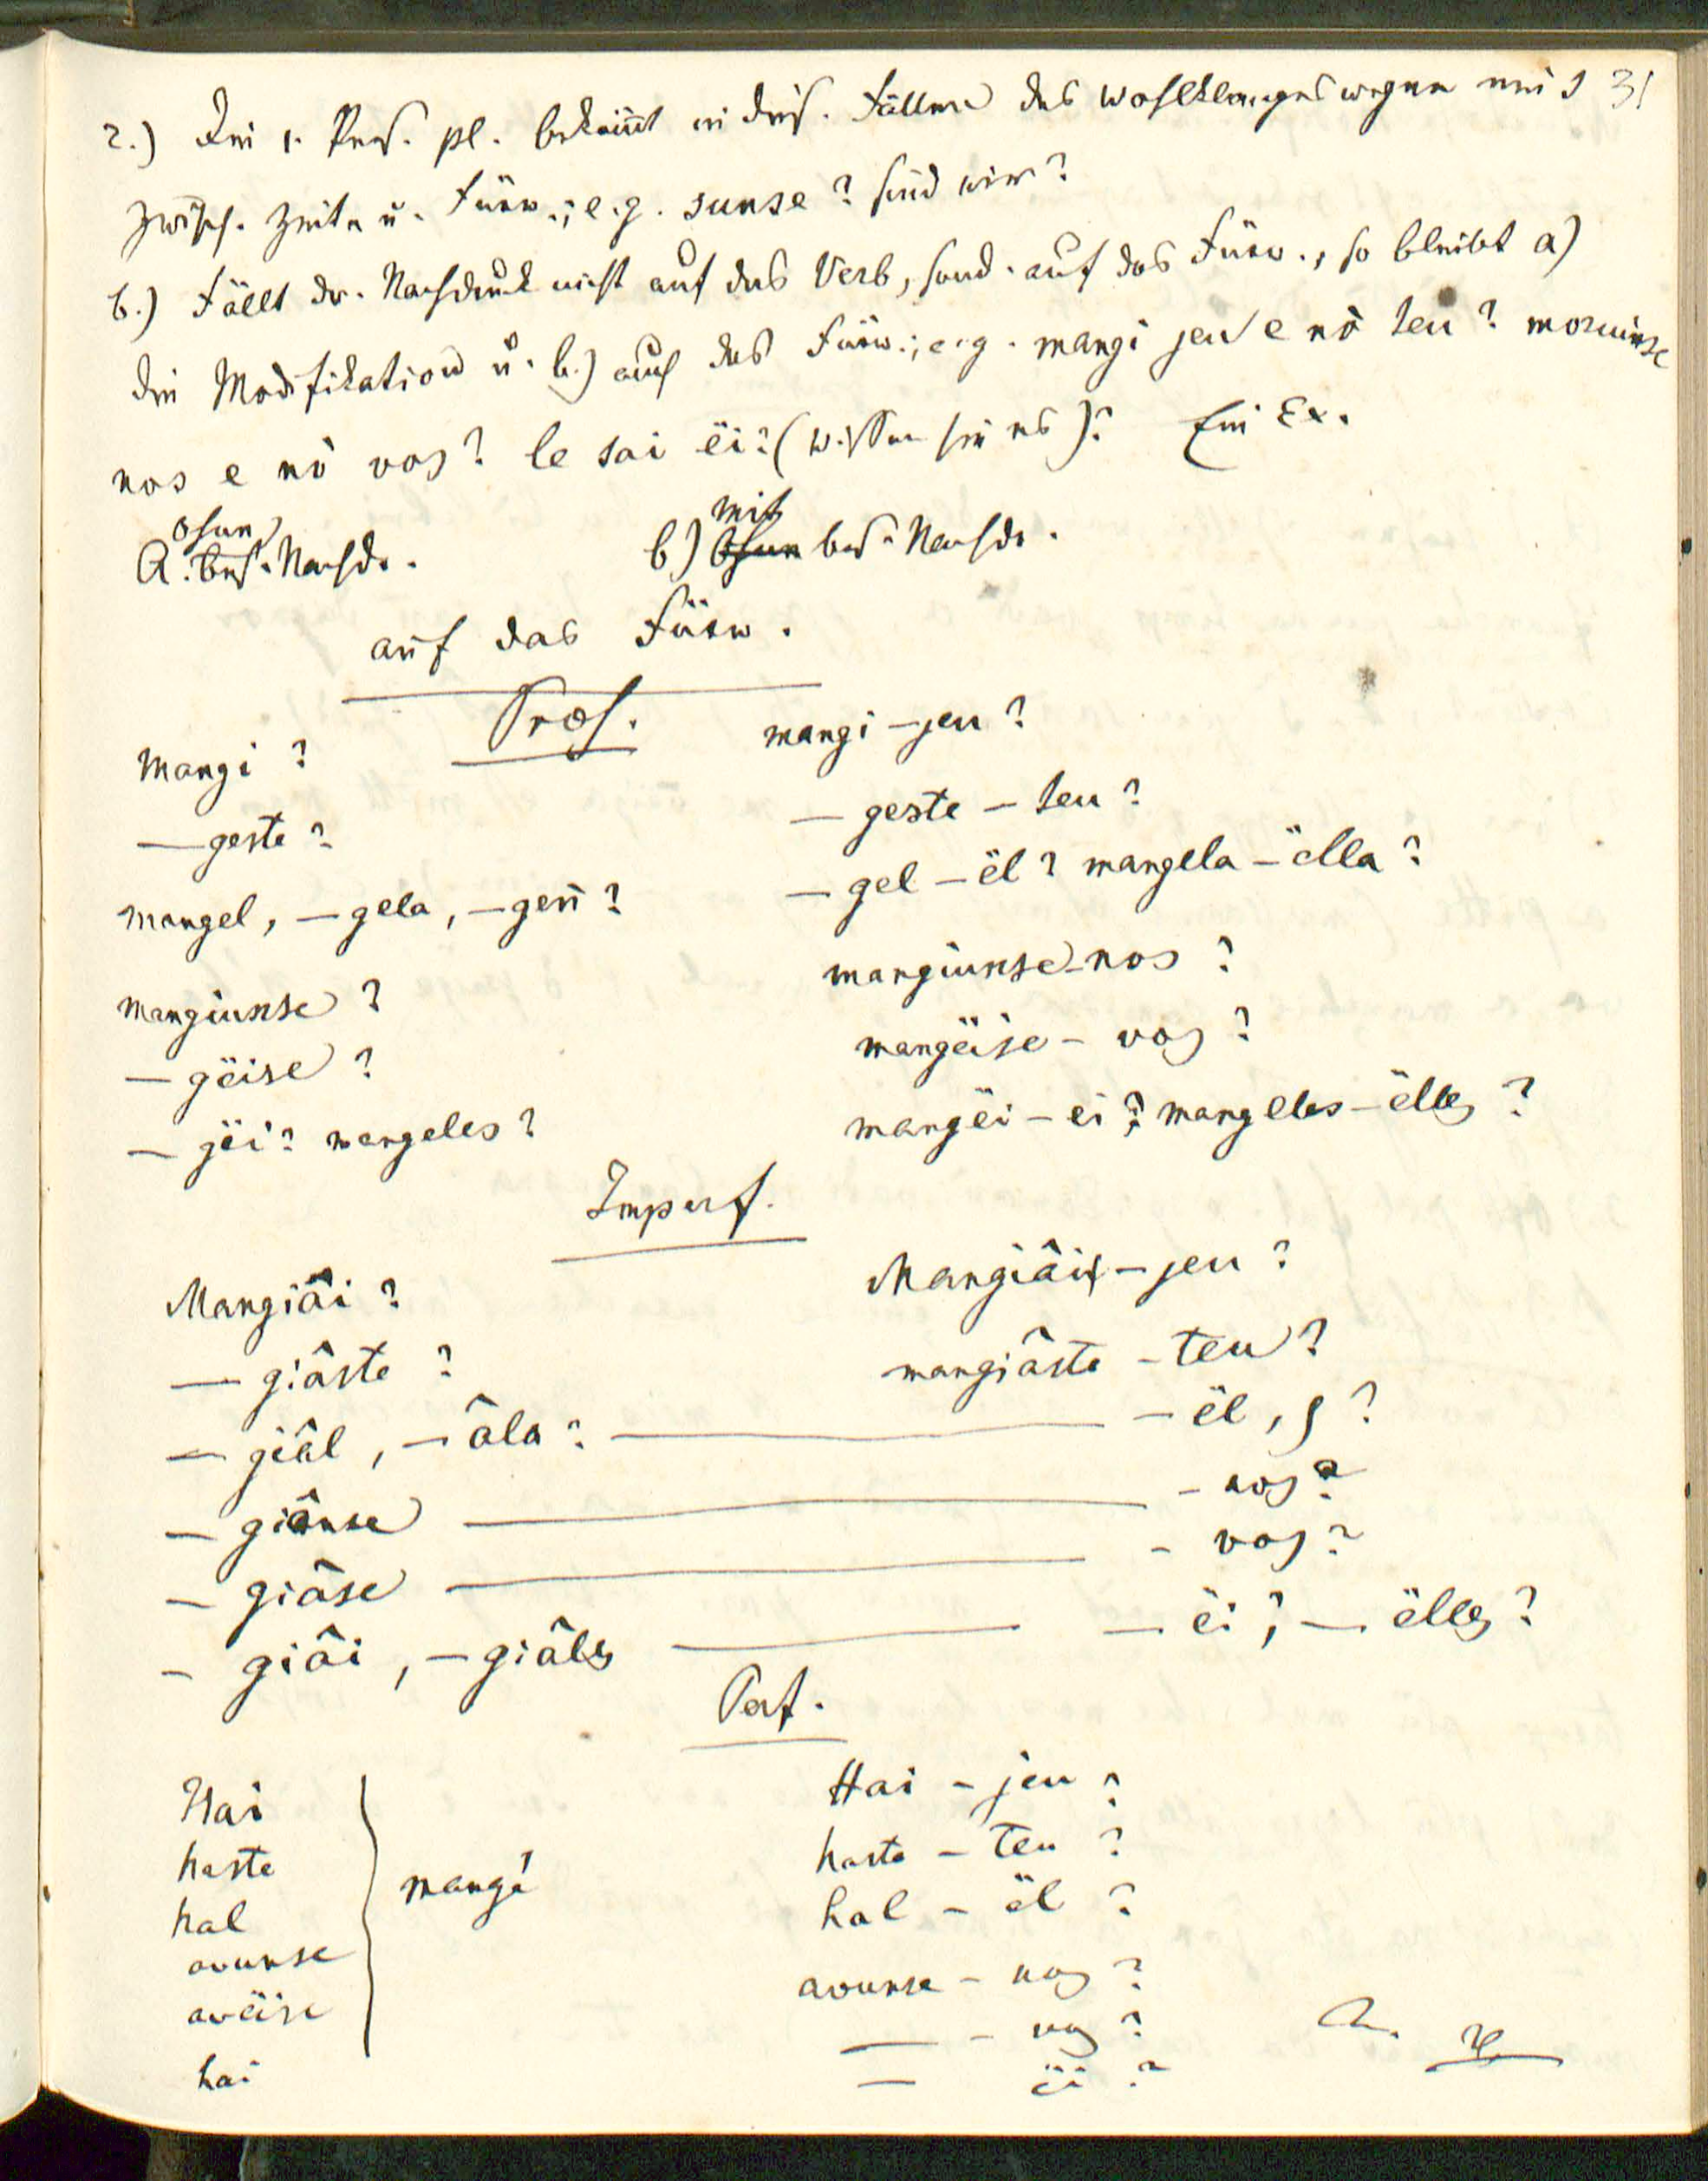 31
2.) Die 1. Pers. pl. bekommt in dies. Fällen des Wohlklanges wegen ein s
zwisch. Zeitw. u. Fürw.; e.g. sunse? sind wir?
b.) Fällt der Nachdruck nicht auf das Verb, sond. auf das Fürw., so bleibt a)
die Modifikation u. b.) auch das Fürw.; e.g. mangi jeu e nò teu? moruinse
nos e nò vos? le sai ëi? (wissen sie es)? Ein Ex.
ohne mit
A. bes. Nachdr. b) ohne bes. Nachdr.
auf das Fürw.
Præs.
Mangi? mangi - jeu?
— geste? — geste - teu?
mangel, — gela, — gen̄? — gel - ël? mangela - ëlla?
mangiunse? mangiunse - nos?
— gëise? mangëise - vos?
— jëi? mangeles? mangëi - ëi? mangeles - ëlles?
Imperf.
Mangiâi? Mangiâi - jeu?
— giâste? mangiâste - teu?
— giâl, — âla? — - ël, ?
— giânse — - nos?
— giâse — - vos?
— giâi, — giâles — - ëi?, — ëlles?
Perf.
Hai Hai - jeu?
haste haste - teu?
mangé
hal hal - ël?
avunse avunse - nos?
avëise — - vos?
hai — ëi?